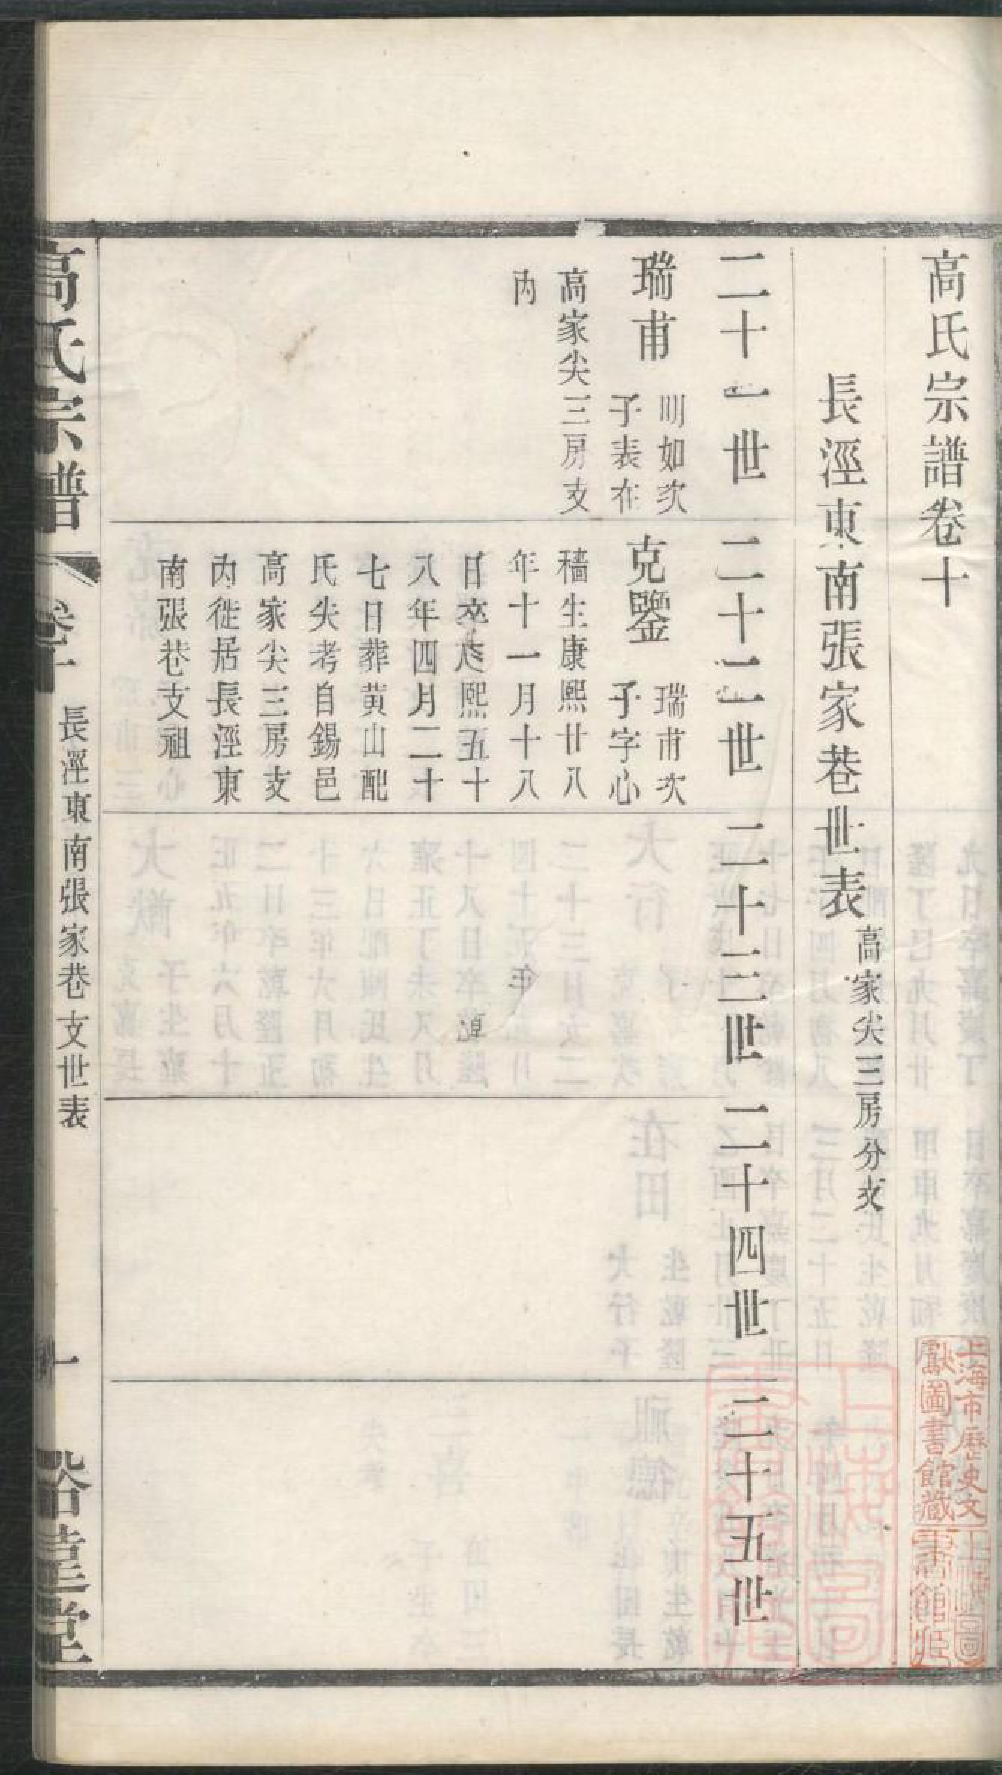 高氏宗譜卷十
長涇東南張家巷世表 高家尖三房分支
二十一世 二十二世 二十三世 二十四世 二十五世
瑞甫
明如次
子表在
高家尖三房支
内
克鑒
瑞甫次
子字心
穡生康熙廿八
年十一月十八
日卒康熙五十
八年四月二十
七日葬黄山配
氏失考自錫邑
高家尖三房支
内徙居長涇東
南張巷支祖
高氏宗譜
卷十
長涇東南張家巷支世表
一
裕違堂
上海市歷史文
獻圖書館藏